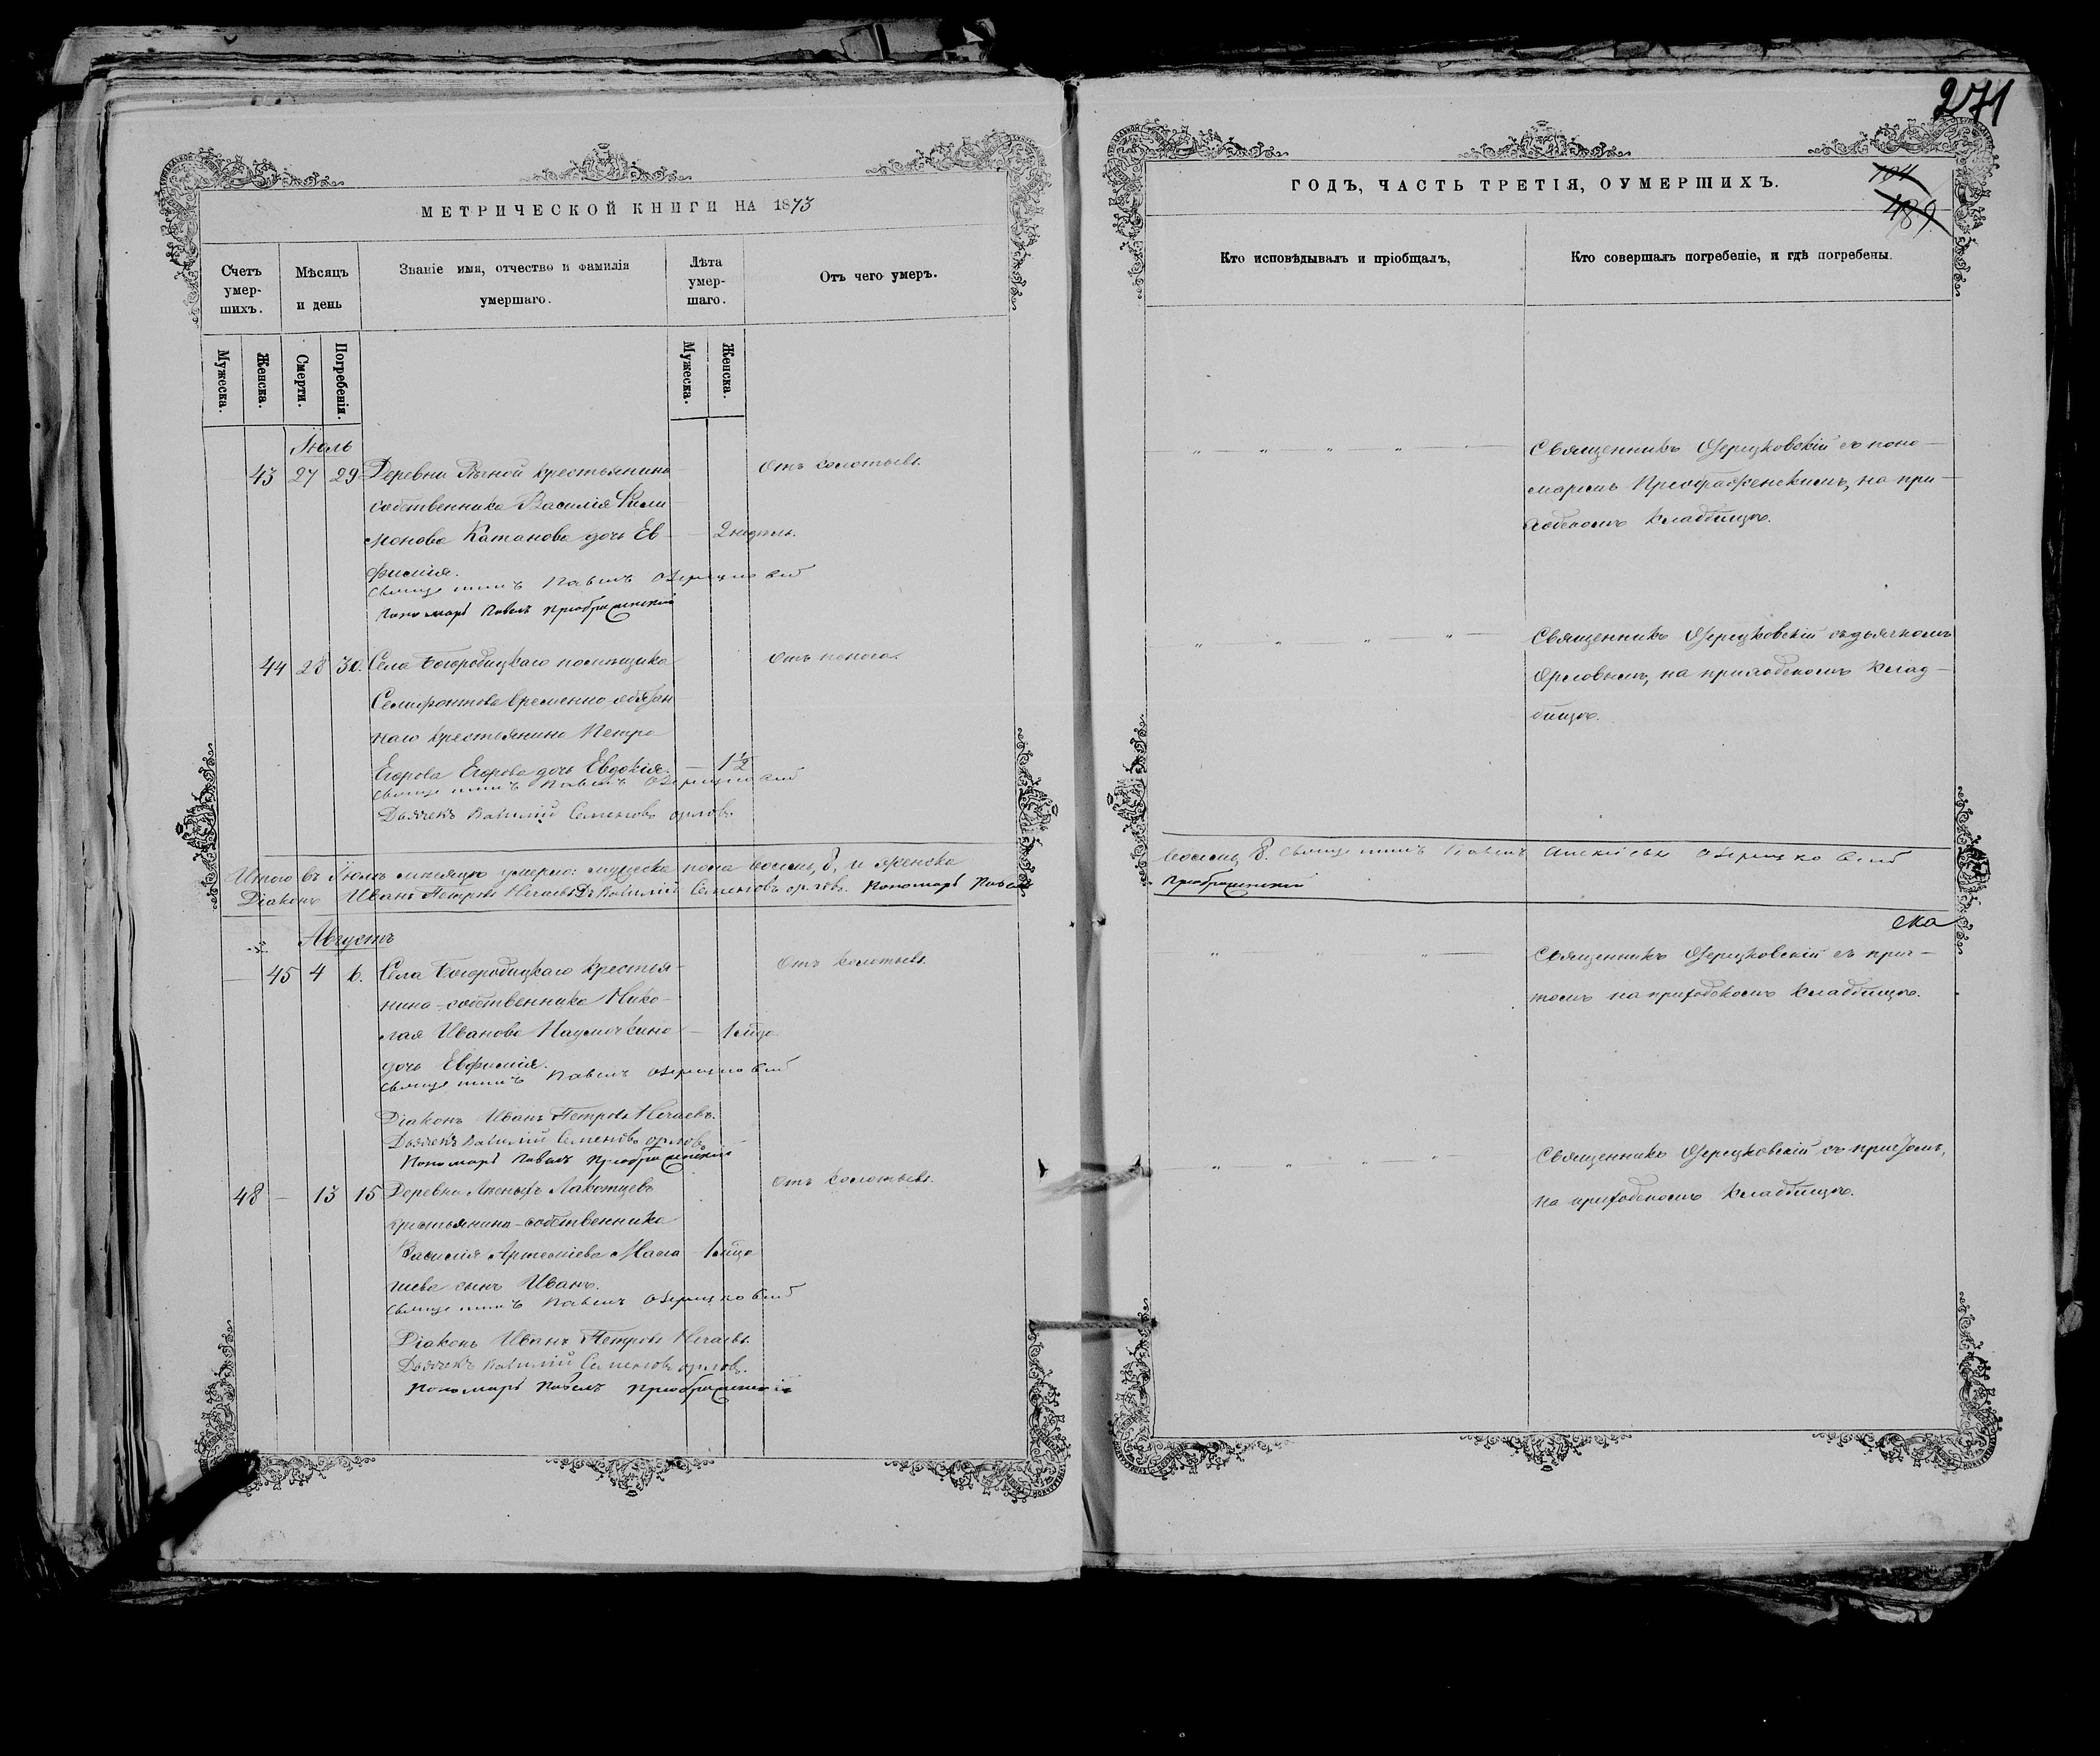 МЕТРИЧЕСКОЙ КНИГИ НА 1873
Счетъ умер- шихъ.
Мѣсяцъ и день
Званіе имя, отчество и фамилія умершаго.
Лѣта умер- шаго.
Отъ чего умеръ.
Мужеска.
Женска.
Смерти.
Погребенія.
Мужеска.
Женска.
Іюль
43 27 29 Деревни крестьянина Отъ колотьевъ.
собственника Василія Фили
монова Катанова дочь Ев — 2 недѣль.
фимія.
Священникъ Павелъ Озерецковскій
Пономарь Павелъ Преображенскій
44 28 30. Села Богородицкаго помѣщика Отъ поноса.
Селифонтова временно обязан
наго крестьянина Петра
Егорова Егорова дочь Евдокія. — 1½
Священникъ Павелъ Озерецковскій
Дьячекъ Василій Семеновъ Орловъ
Итого въ Іюлѣ мѣсяцѣ умерло: мужеска пола восемь, 8, и женска
Діаконъ Иванъ Петровъ Нечаевъ Василій Семеновъ Орловъ. Пономарь Павелъ
Августъ
— 45 4 6. Села Богородицкаго крестья- Отъ колотьевъ.
нина-собственника Нико-
лая Иванова — 1 мѣс.
дочь Евфимія.
Священникъ Павелъ Озерецковскій
Діаконъ Иванъ Петровъ Нечаевъ.
Дьячекъ Василій Семеновъ Орловъ
Пономарь Павелъ Преображенскій
48 — 13 15 Деревни Отъ колотьевъ.
крестьянина-собственника
Василія Артеміева 1 мѣс.
сынъ Иванъ.
Священникъ Павелъ Озерецковскій
Діаконъ Иванъ Петровъ Нечаевъ.
Дьячекъ Василій Семеновъ Орловъ.
Пономарь Павелъ Преображенскій
271
104
489
ГОДЪ, ЧАСТЬ ТРЕТІЯ, ОУМЕРШИХЪ.
Кто исповѣдывалъ и пріобщалъ,
Кто совершалъ погребеніе, и гдѣ погребены.
Священникъ Озерецковскій съ поно-
маремъ Преображенскимъ, на при-
ходскомъ кладбищѣ.
Священникъ Озерецковскій съ дьячкомъ
Орловымъ, на приходскомъ клад-
бищѣ.
восемь, 8. Священникъ Павелъ Алексѣевъ Озерецковскій
Преображенскій
ска
Священникъ Озерецковскій съ прич-
томъ на приходскомъ кладбищѣ.
Священникъ Озерецковскій съ причтомъ,
на приходскомъ кладбищѣ.